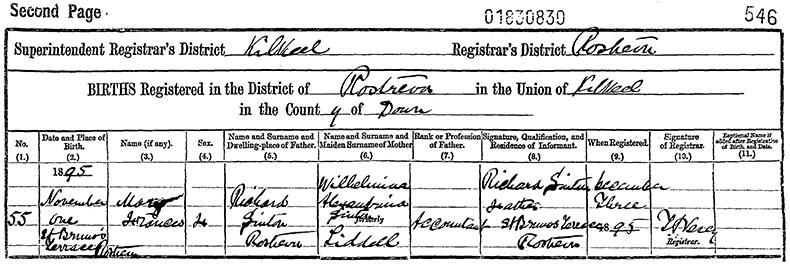 Second Page. 01830830 546
Superintendent Registrar's District Kilkeel Registrar's District Rostrevor
BIRTHS Registered in the District of Rostrevor in the Union of Kilkeel
in the County of Down
No. Date and Place of Birth. Name (if any). Sex. Name and Surname and Dwelling-place of Father. Name and Surname and Maiden Surname of Mother Rank or Profession of Father. Signature, Qualification, and Residence of Informant. When Registered. Signature of Registrar. Baptismal Name if added after Registration of Birth, and Date.
(1.) (2.) (3.) (4.) (5.) (6.) (7.) (8.) (9.) (10.) (11.)
1895 Wilhelmina Richard Sinton December
November Mary Richard Alexandrina Father Three
55 one Frances Sinton Sinton formerly Accountant St Bruno's Terrace 1895
St Bruno's Rostrevor Liddell Rostrevor Registrar.
Terrace Rostrevor